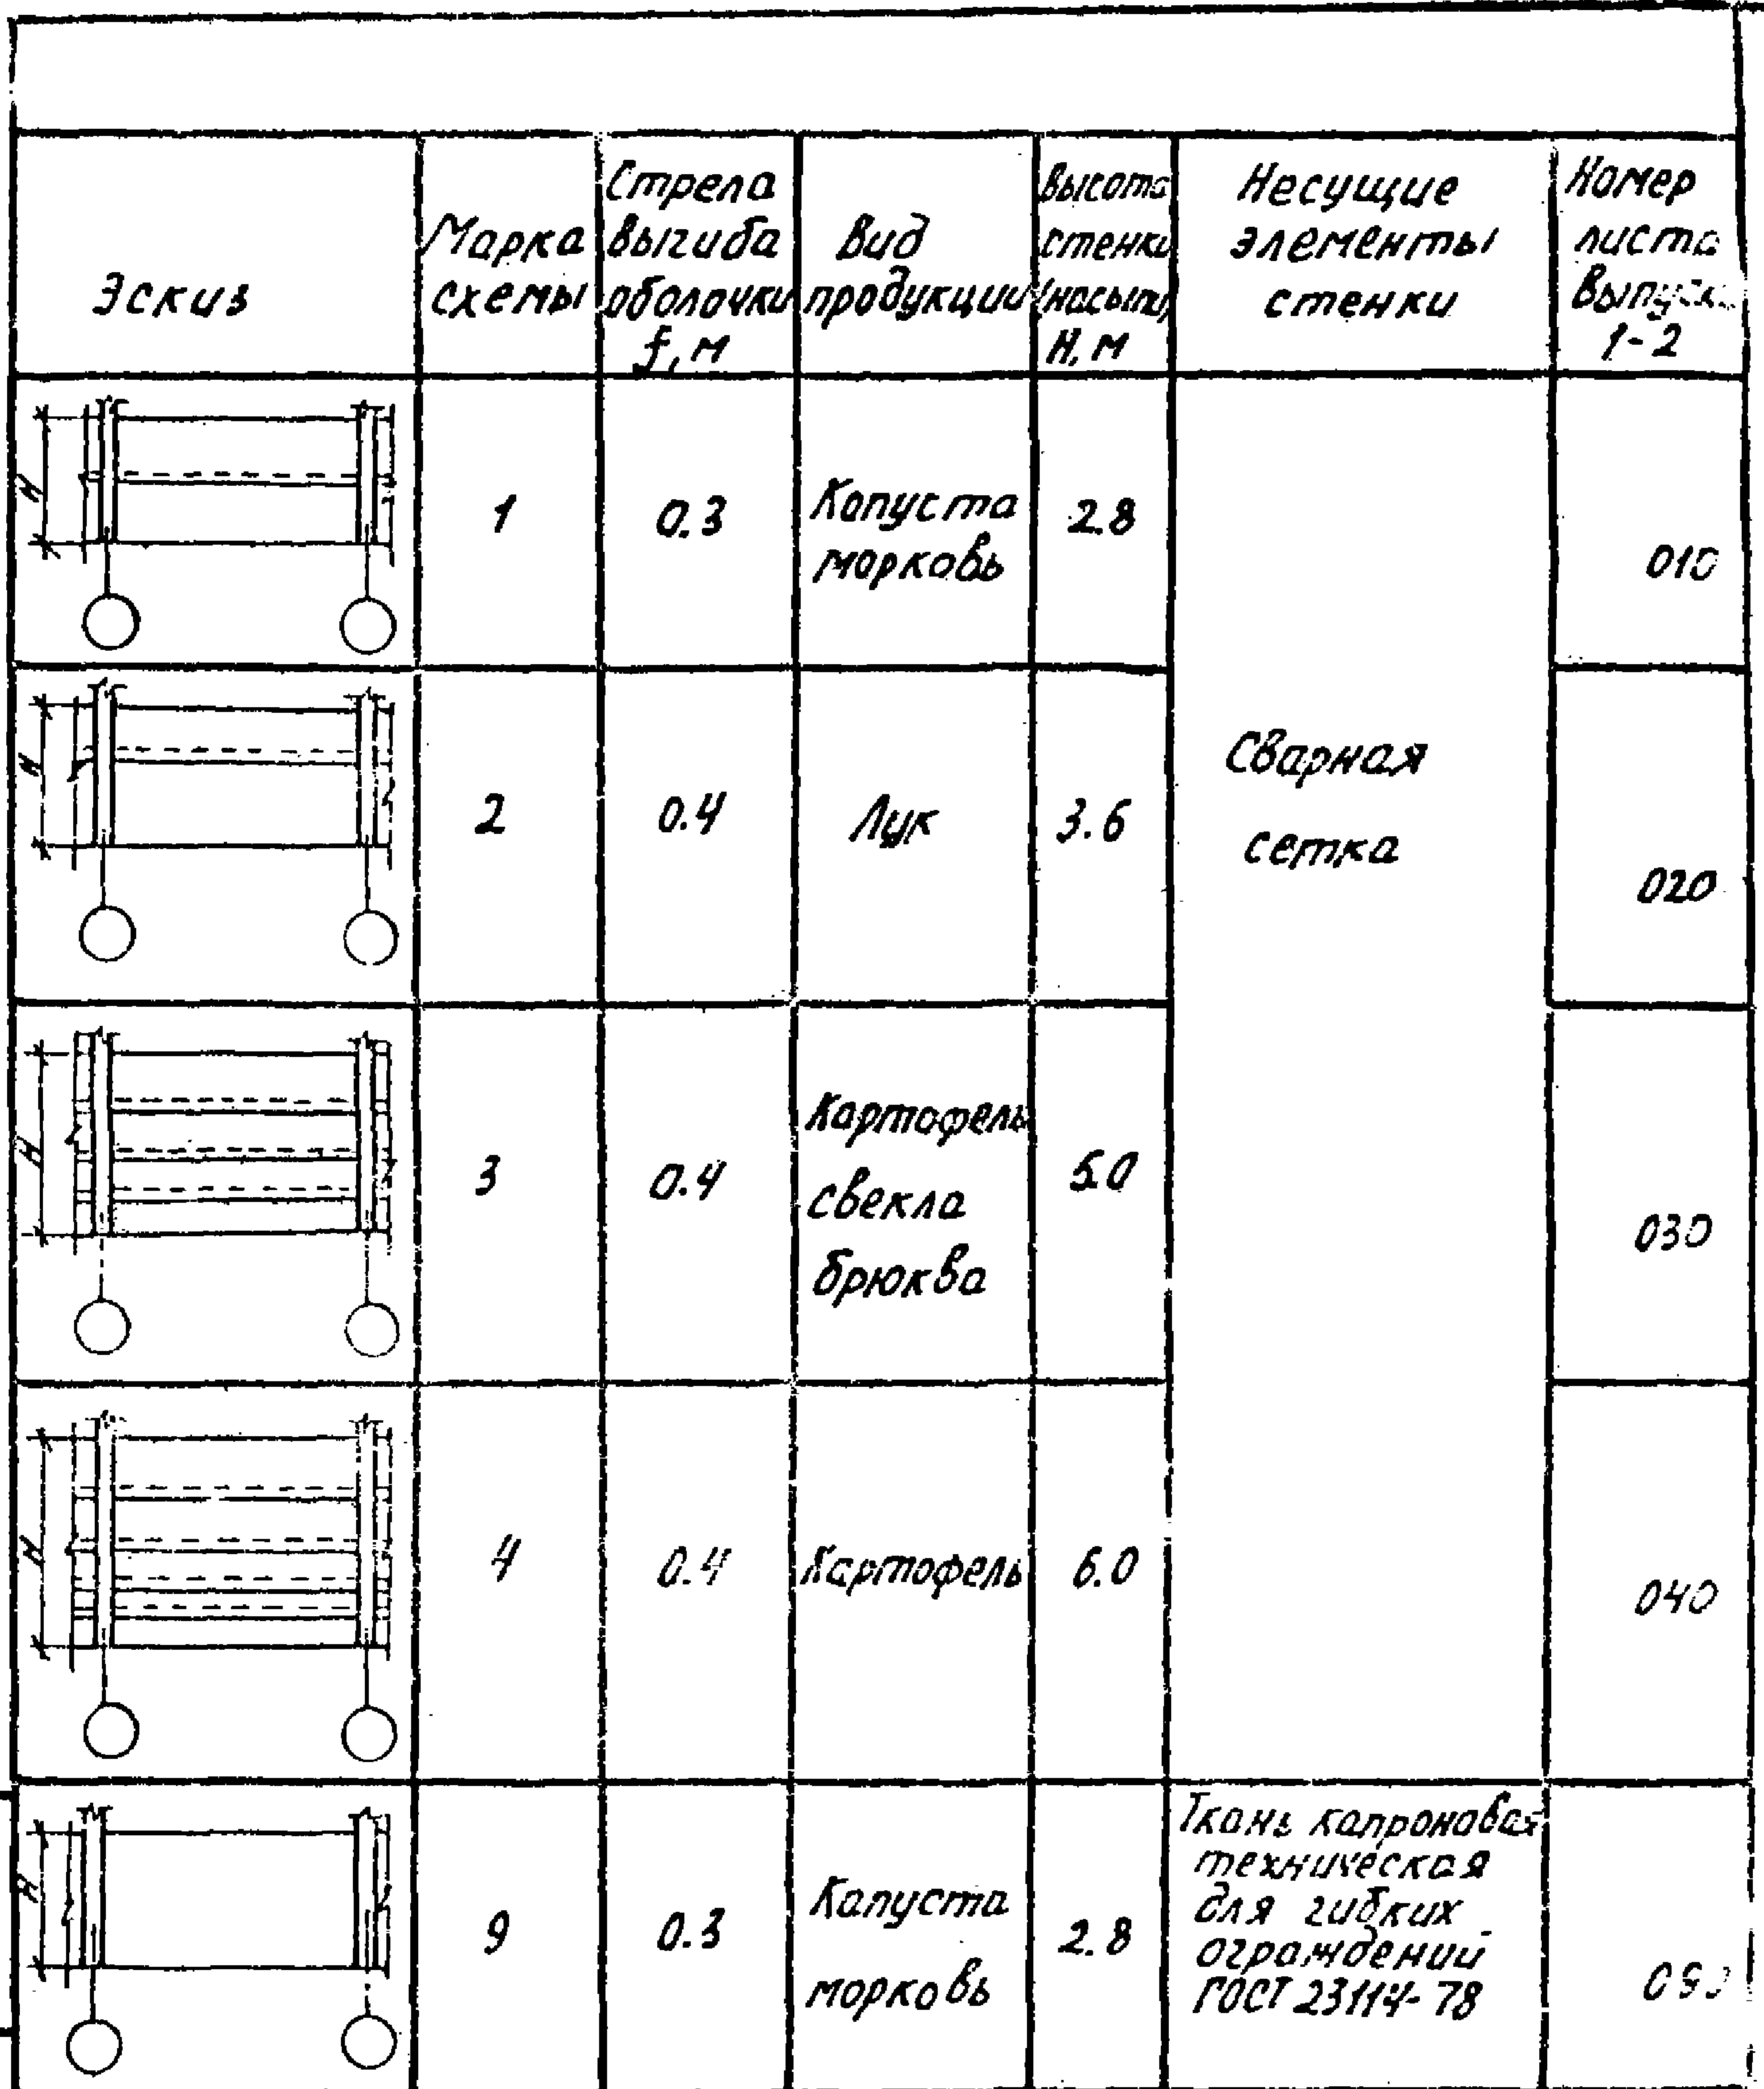 Эскиз
Марка
схемы
Стрела
выгиба
оболочки
f, м
Вид
продукции
Высота
стенки
(насыпи)
Н, м
Несущие
элементы
стенки
Номер
листа
выпуска
1-2
Н
1
0.3
Капуста
морковь
2.8
Сварная
сетка
010
Н
2
0.4
Лук
3.6
020
Н
3
0.4
Картофель
свекла
брюква
5.0
030
Н
4
0.4
Картофель
6.0
040
Н
9
0.3
Капуста
морковь
2.8
Ткань капроновая
техническая
для гибких
ограждений
ГОСТ 23114-78